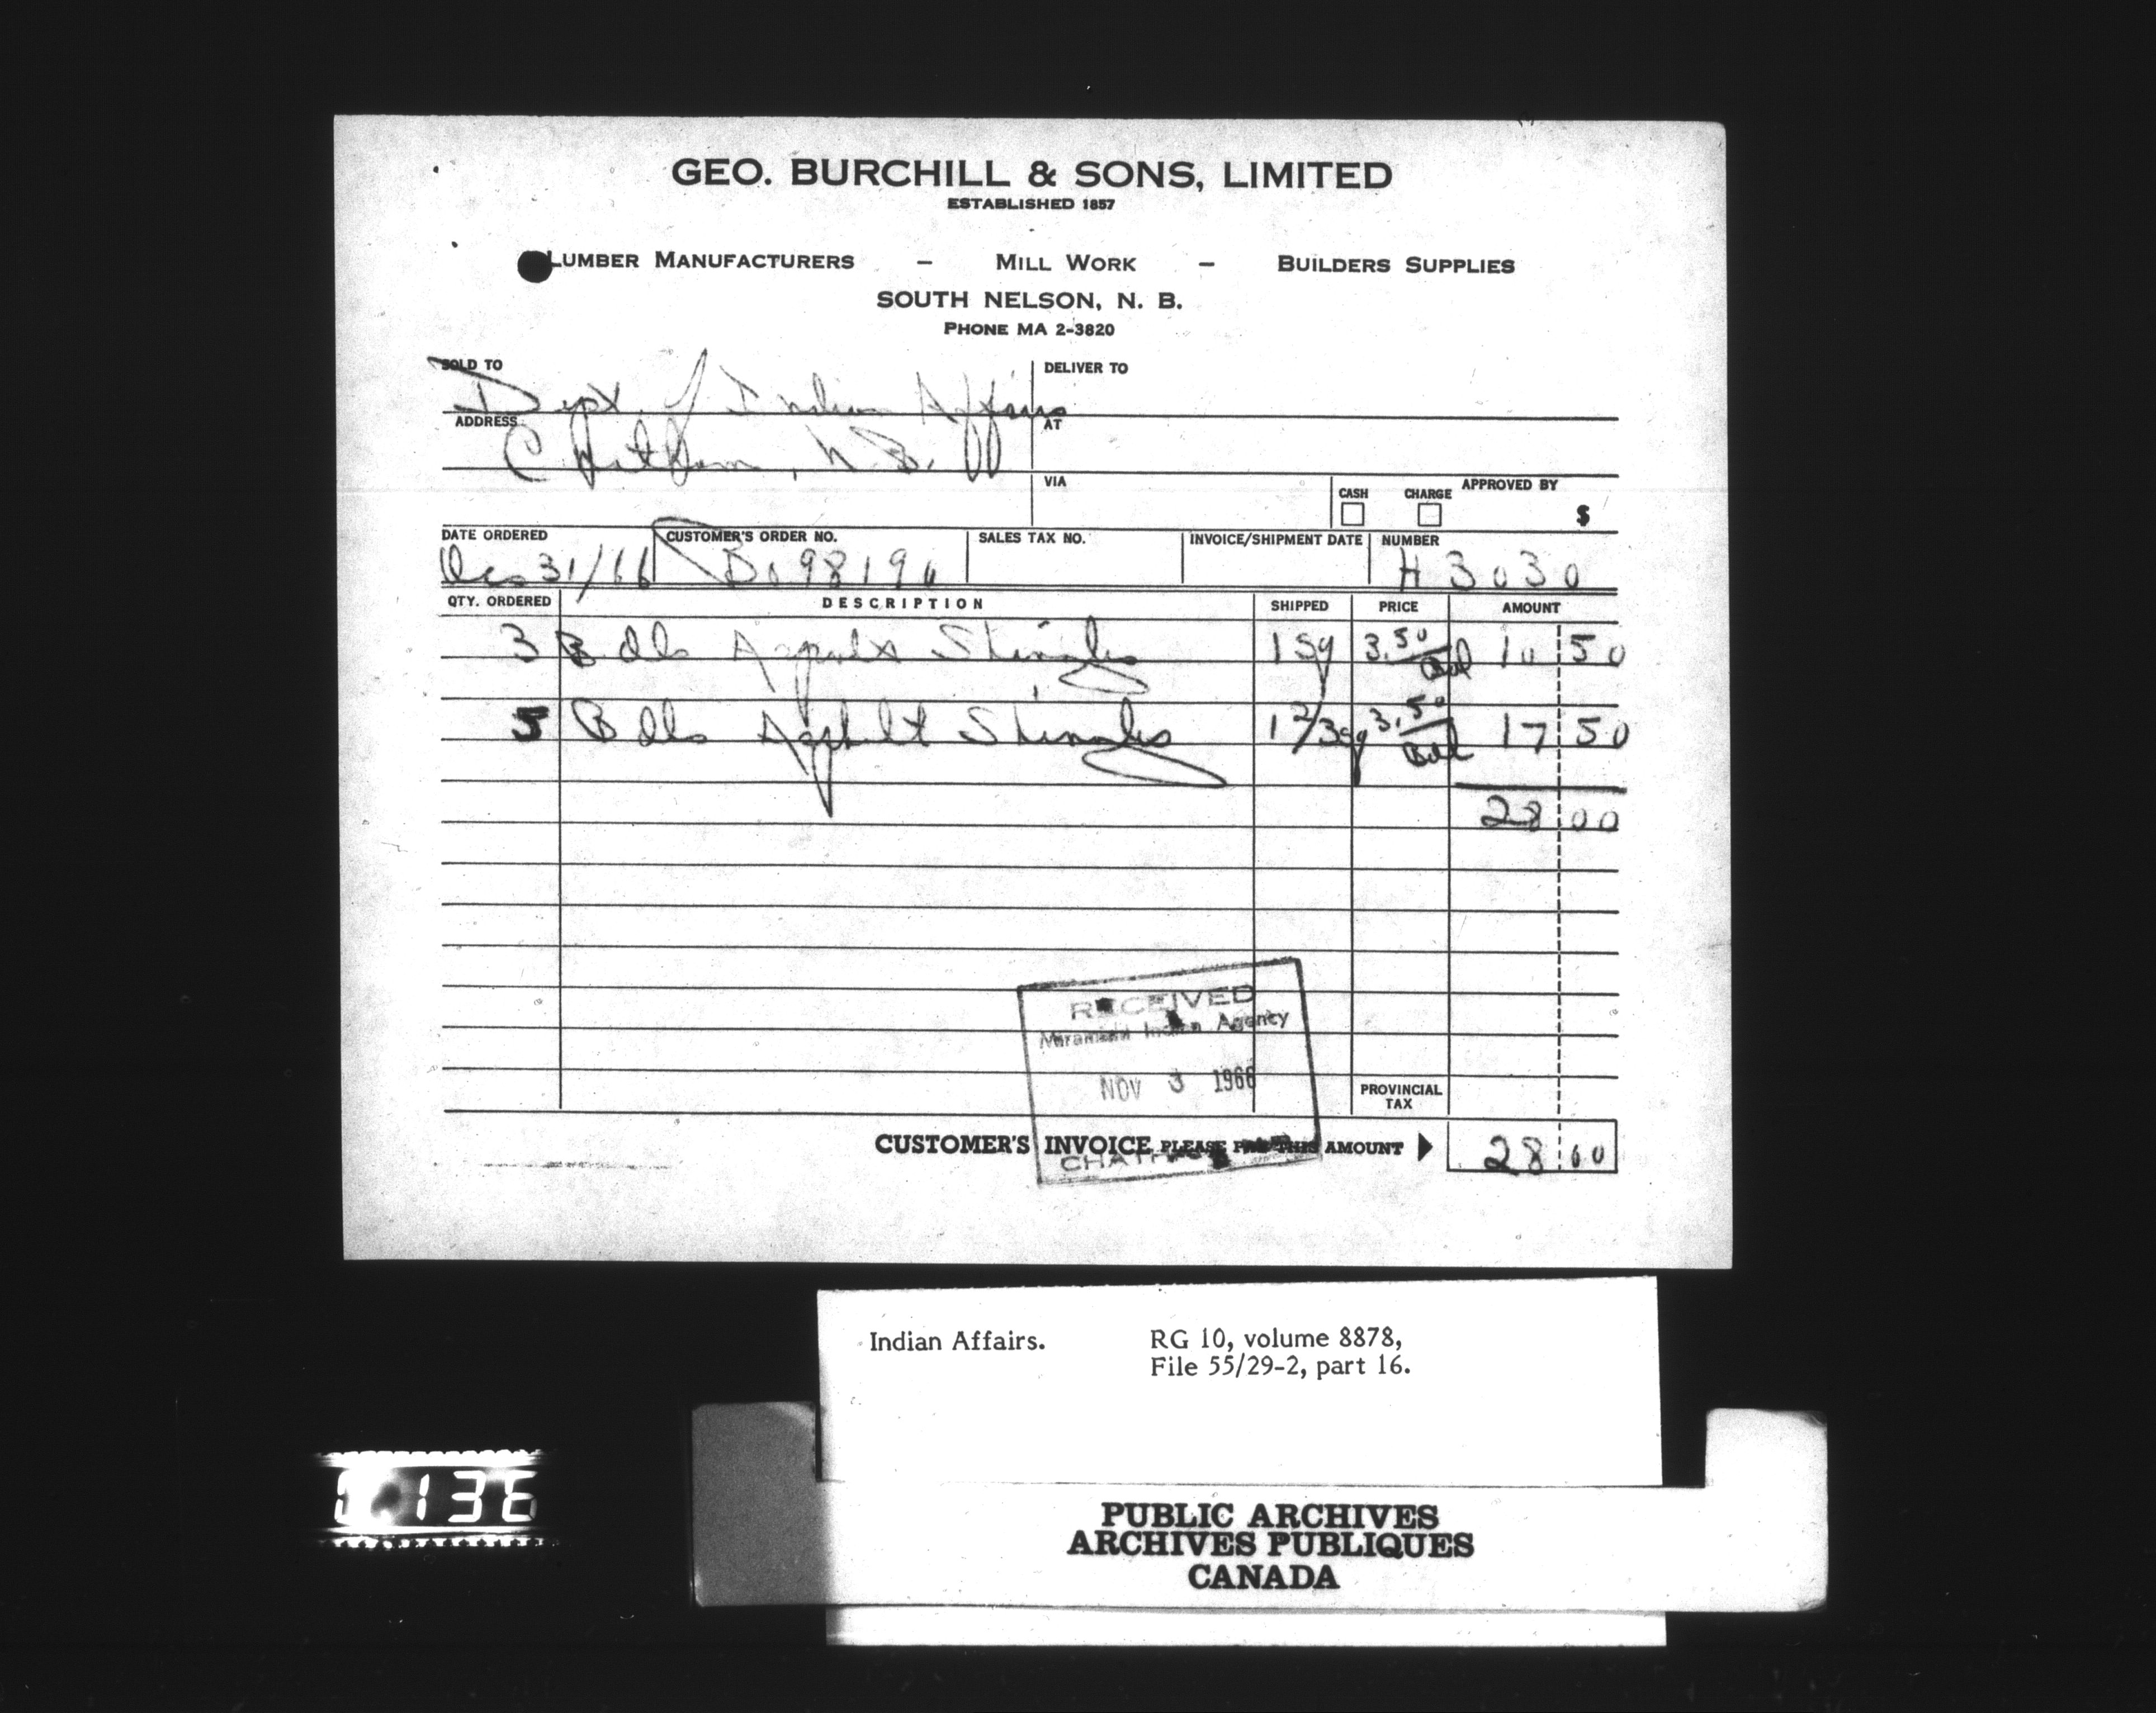 GEO. BURCHILL & SONS, LIMITED
ESTABLISHED 1857
LUMBER MANUFACTURERS - MILL WORK - BUILDERS SUPPLIES
SOUTH NELSON, N. B.
PHONE MA 2-3820
SOLD TO DELIVER TO
Dept. of Indian Affairs
ADDRESS AT
Chatham, N.B.
VIA CASH CHARGE APPROVED BY
$
DATE ORDERED CUSTOMER'S ORDER NO. SALES TAX NO. INVOICE/SHIPMENT DATE NUMBER
31/66 H 3030
QTY. ORDERED DESCRIPTION SHIPPED PRICE AMOUNT
3 Bdls Asphalt Shingles 1 sq 3.50/Bdl 10 50
5 Bdls Asphalt Shingles 1 2/3 sq 3.50/Bdl 17 50
28 00
RECEIVED
Miramichi Indian Agency
NOV 3 1966
PROVINCIAL
TAX
CUSTOMER'S INVOICE PLEASE PAY THIS AMOUNT 28 00
CHATHAM
Indian Affairs. RG 10, volume 8878,
File 55/29-2, part 16.
136
PUBLIC ARCHIVES
ARCHIVES PUBLIQUES
CANADA